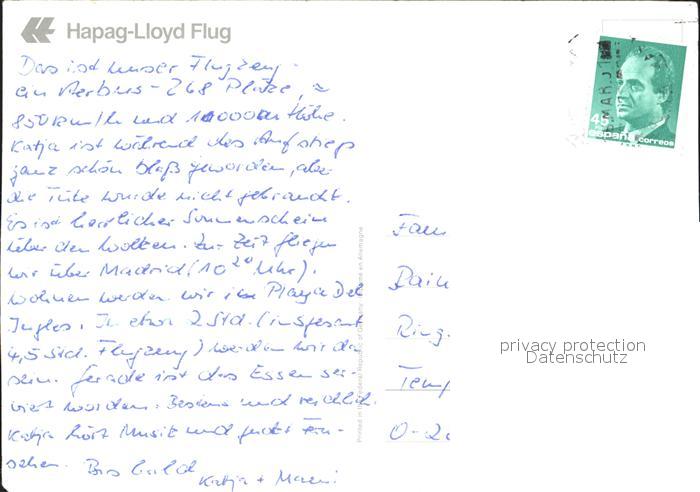 Hapag-Lloyd Flug
Das ist unser Flugzeug.
ein Aerbus - 268 Plätze, ≈
850 km/h und 10000m Höhe.
Katja ist während des Aufstiegs
ganz schön blaß geworden, aber
die Tüte wurde nicht gebraucht.
Es ist herrlicher Sonnenschein
über den Wolken. Zur Zeit fliegen
wir über Madrid (10 20 Uhr).
Wohnen werden wir in Playa Del
Ingles. In etwa 2 Std. (insgesamt
4,5 Std. Flugzeug) werden wir da
sein. Gerade ist das Essen ser-
viert worden. Bestens und reichlich.
Katja hört Musik und guckt Fern-
sehen. Bis bald
Katja +
Fam
Ring.
Temp
45
españa correos
Printed in the Federal Republic of Germany
en Allemagne
privacy protection
Datenschutz